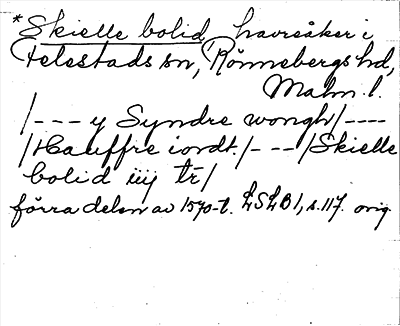 *Skielle bolid, havreåker i
Felestads sn, Rönnebergs hd,
Malm. l.
/--- y Syndre wongh/----
/Hauffre iordt./---/Skielle
bolid iiij tr/
förra delen av 1570-t. LSLB1, s.117. orig.